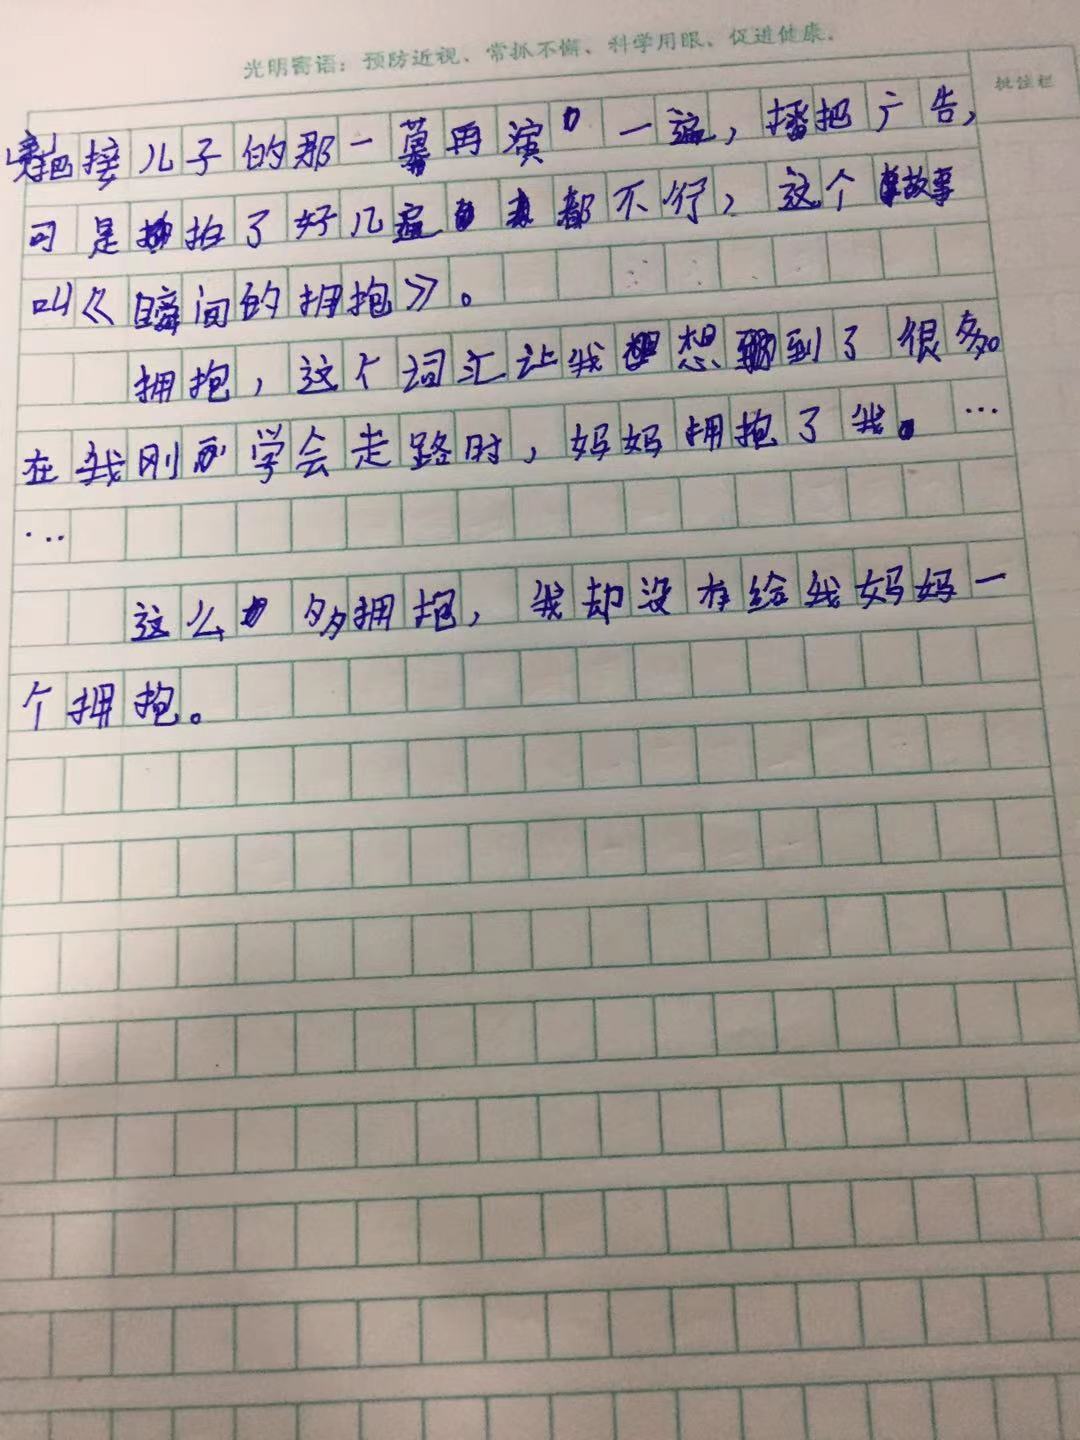 光明寄语：预防近视、常抓不懈、科学用眼、促进健康。
批注栏
把接儿子的那一幕再演一遍，播把广告，
可是拍了好几遍都不行，这个故事
叫《瞬间的拥抱》。
拥抱，这个词汇让我想到了很多
在我刚刚学会走路时，妈妈拥抱了我。…
…
这么多拥抱，我却没有给我妈妈一
个拥抱。